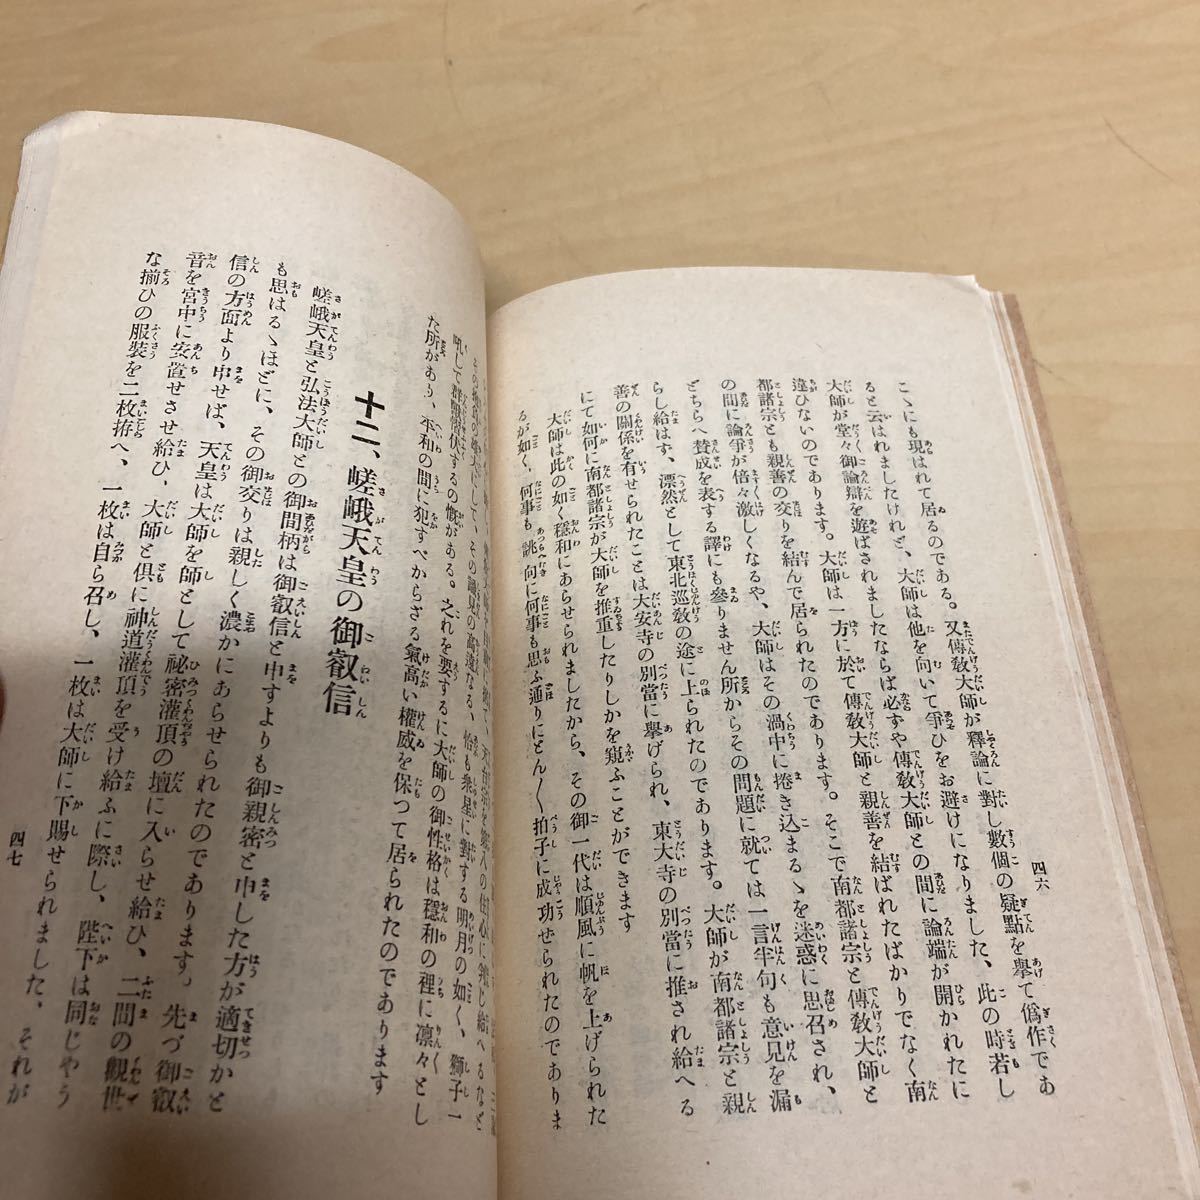 四六
こゝにも現はれて居るのである。又傳敎大師が釋論に對し數個の疑點を擧て僞作であ
ると云はれましたけれど、大師は他を向いて爭ひをお避けになりました、此の時若し
大師が堂々御論辯を遊ばされましたならば必ずや傳敎大師との間に論端が開かれたに
違ひないのであります。大師は一方に於て傳敎大師と親善を結ばれたばかりでなく南
都諸宗とも親善の交りを結んで居られたのであります。そこで南都諸宗と傳敎大師と
の間に論爭が倍々激しくなるや、大師はその渦中に捲き込まるゝを迷惑に思召され、
どちらへ賛成を表する譯にも參りません所からその問題に就ては一言半句も意見を漏
らし給はず、漂然として東北巡敎の途に上られたのであります。大師が南都諸宗と親
善の關係を有せられたことは大安寺の別當に擧げられ、東大寺の別當に推され給へる
にて如何に南都諸宗が大師を推重したりしかを窺ふことができます
大師は此の如く穩和にあらせられましたから、その御一代は順風に帆を上げられた
るが如く、何事も誂向に何事も思ふ通りにとん〱拍子に成功せられたのでありま
その御見の高遠なる、恰も衆星に對する明月の如く、獅子一
吼して群獸慴伏するの慨がある。之れを要するに大師の御性格は穩和の裡に凛々とし
た所があり、平和の間に犯すべからざる氣高い權威を保つて居られたのであります
十二、嵯峨天皇の御叡信
嵯峨天皇と弘法大師との御間柄は御叡信と申すよりも御親密と申した方が適切かと
も思はるゝほどに、その御交りは親しく濃かにあらせられたのであります。先づ御叡
信の方面より申せば、天皇は大師を師として祕密灌頂の壇に入らせ給ひ、二間の觀世
音を宮中に安置せさせ給ひ、大師と俱に神道灌頂を受け給ふに際し、陛下は同じやう
な揃ひの服裝を二枚拵へ、一枚は自ら召し、一枚は大師に下賜せられました、それが
四七